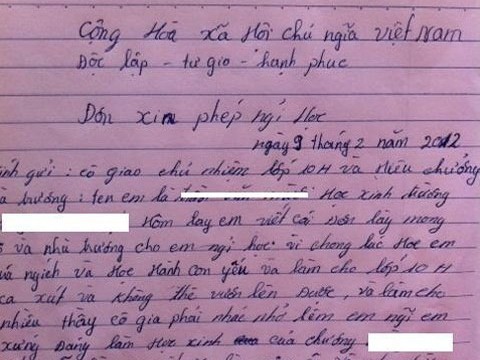 Cộng Hòa xã Hôi chủ ngĩa việt Nam
Độc lập - tự gio - hạnh phúc
Đơn xin phép ngỉ Học
ngày 9 tháng 2 năm 2012
kính gửi : cô giao chủ nhiệm lớp 10 H và Hiệu chưởng
trường : tên em là Học xinh trường
Hôm lay em viết cái đơn lày mong
và nhà trường cho em ngỉ học vì chong lúc Học em
ngịch và Học Hành con yếu và làm cho lớp 10 H
ca xút và không thể vươn lên Được, và làm cho
nhiều thầy cô gia phải nhac nhở lêm em ngĩ em
xưng Đáng làm Học xinh của chường